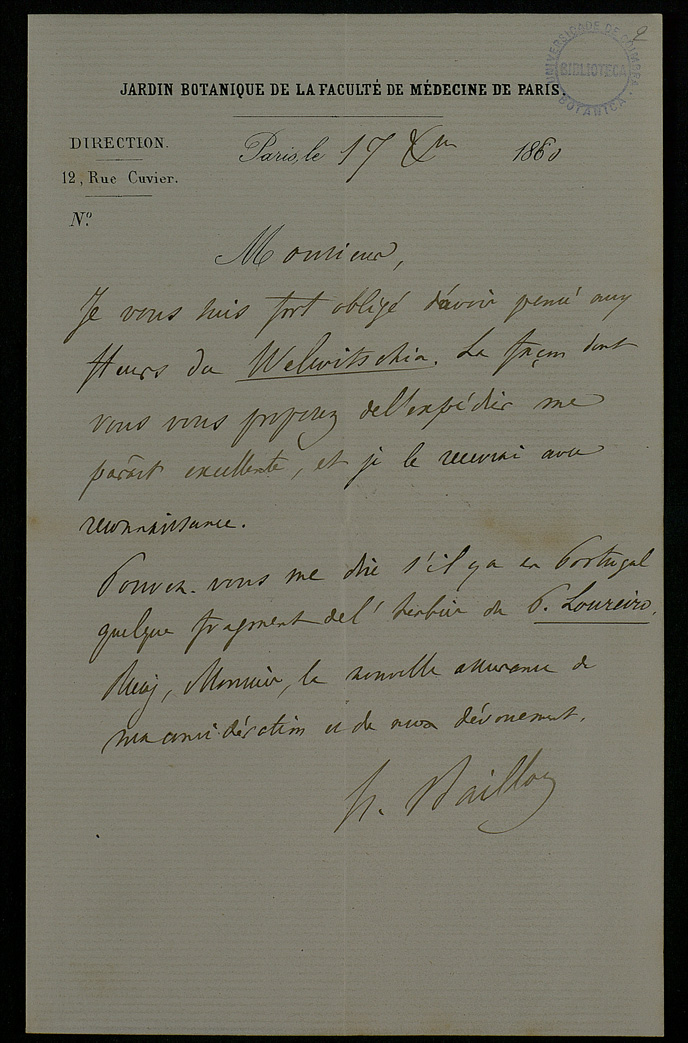 UNIVERSIDADE DE COIMBRA
BIBLIOTECA
BOTANICA
2
JARDIN BOTANIQUE DE LA FACULTÉ DE MÉDECINE DE PARIS.
DIRECTION.
Paris, le 17 Xbre 1880
12, Rue Cuvier.
N.º
Monsieur,
Je vous suis fort obligé d'avoir pensé aux
fleurs du Welwitschia. La façon dont
vous vous proposez de l'expédier me
paraît excellente, et je le recevrai avec
reconnaissance.
Pouvez-vous me dire s'il y a en Portugal
quelque fragment de l'herbier du P. Loureiro.
Monsieur, la nouvelle assurance de
ma considération et de mon dévouement.
H. Baillon